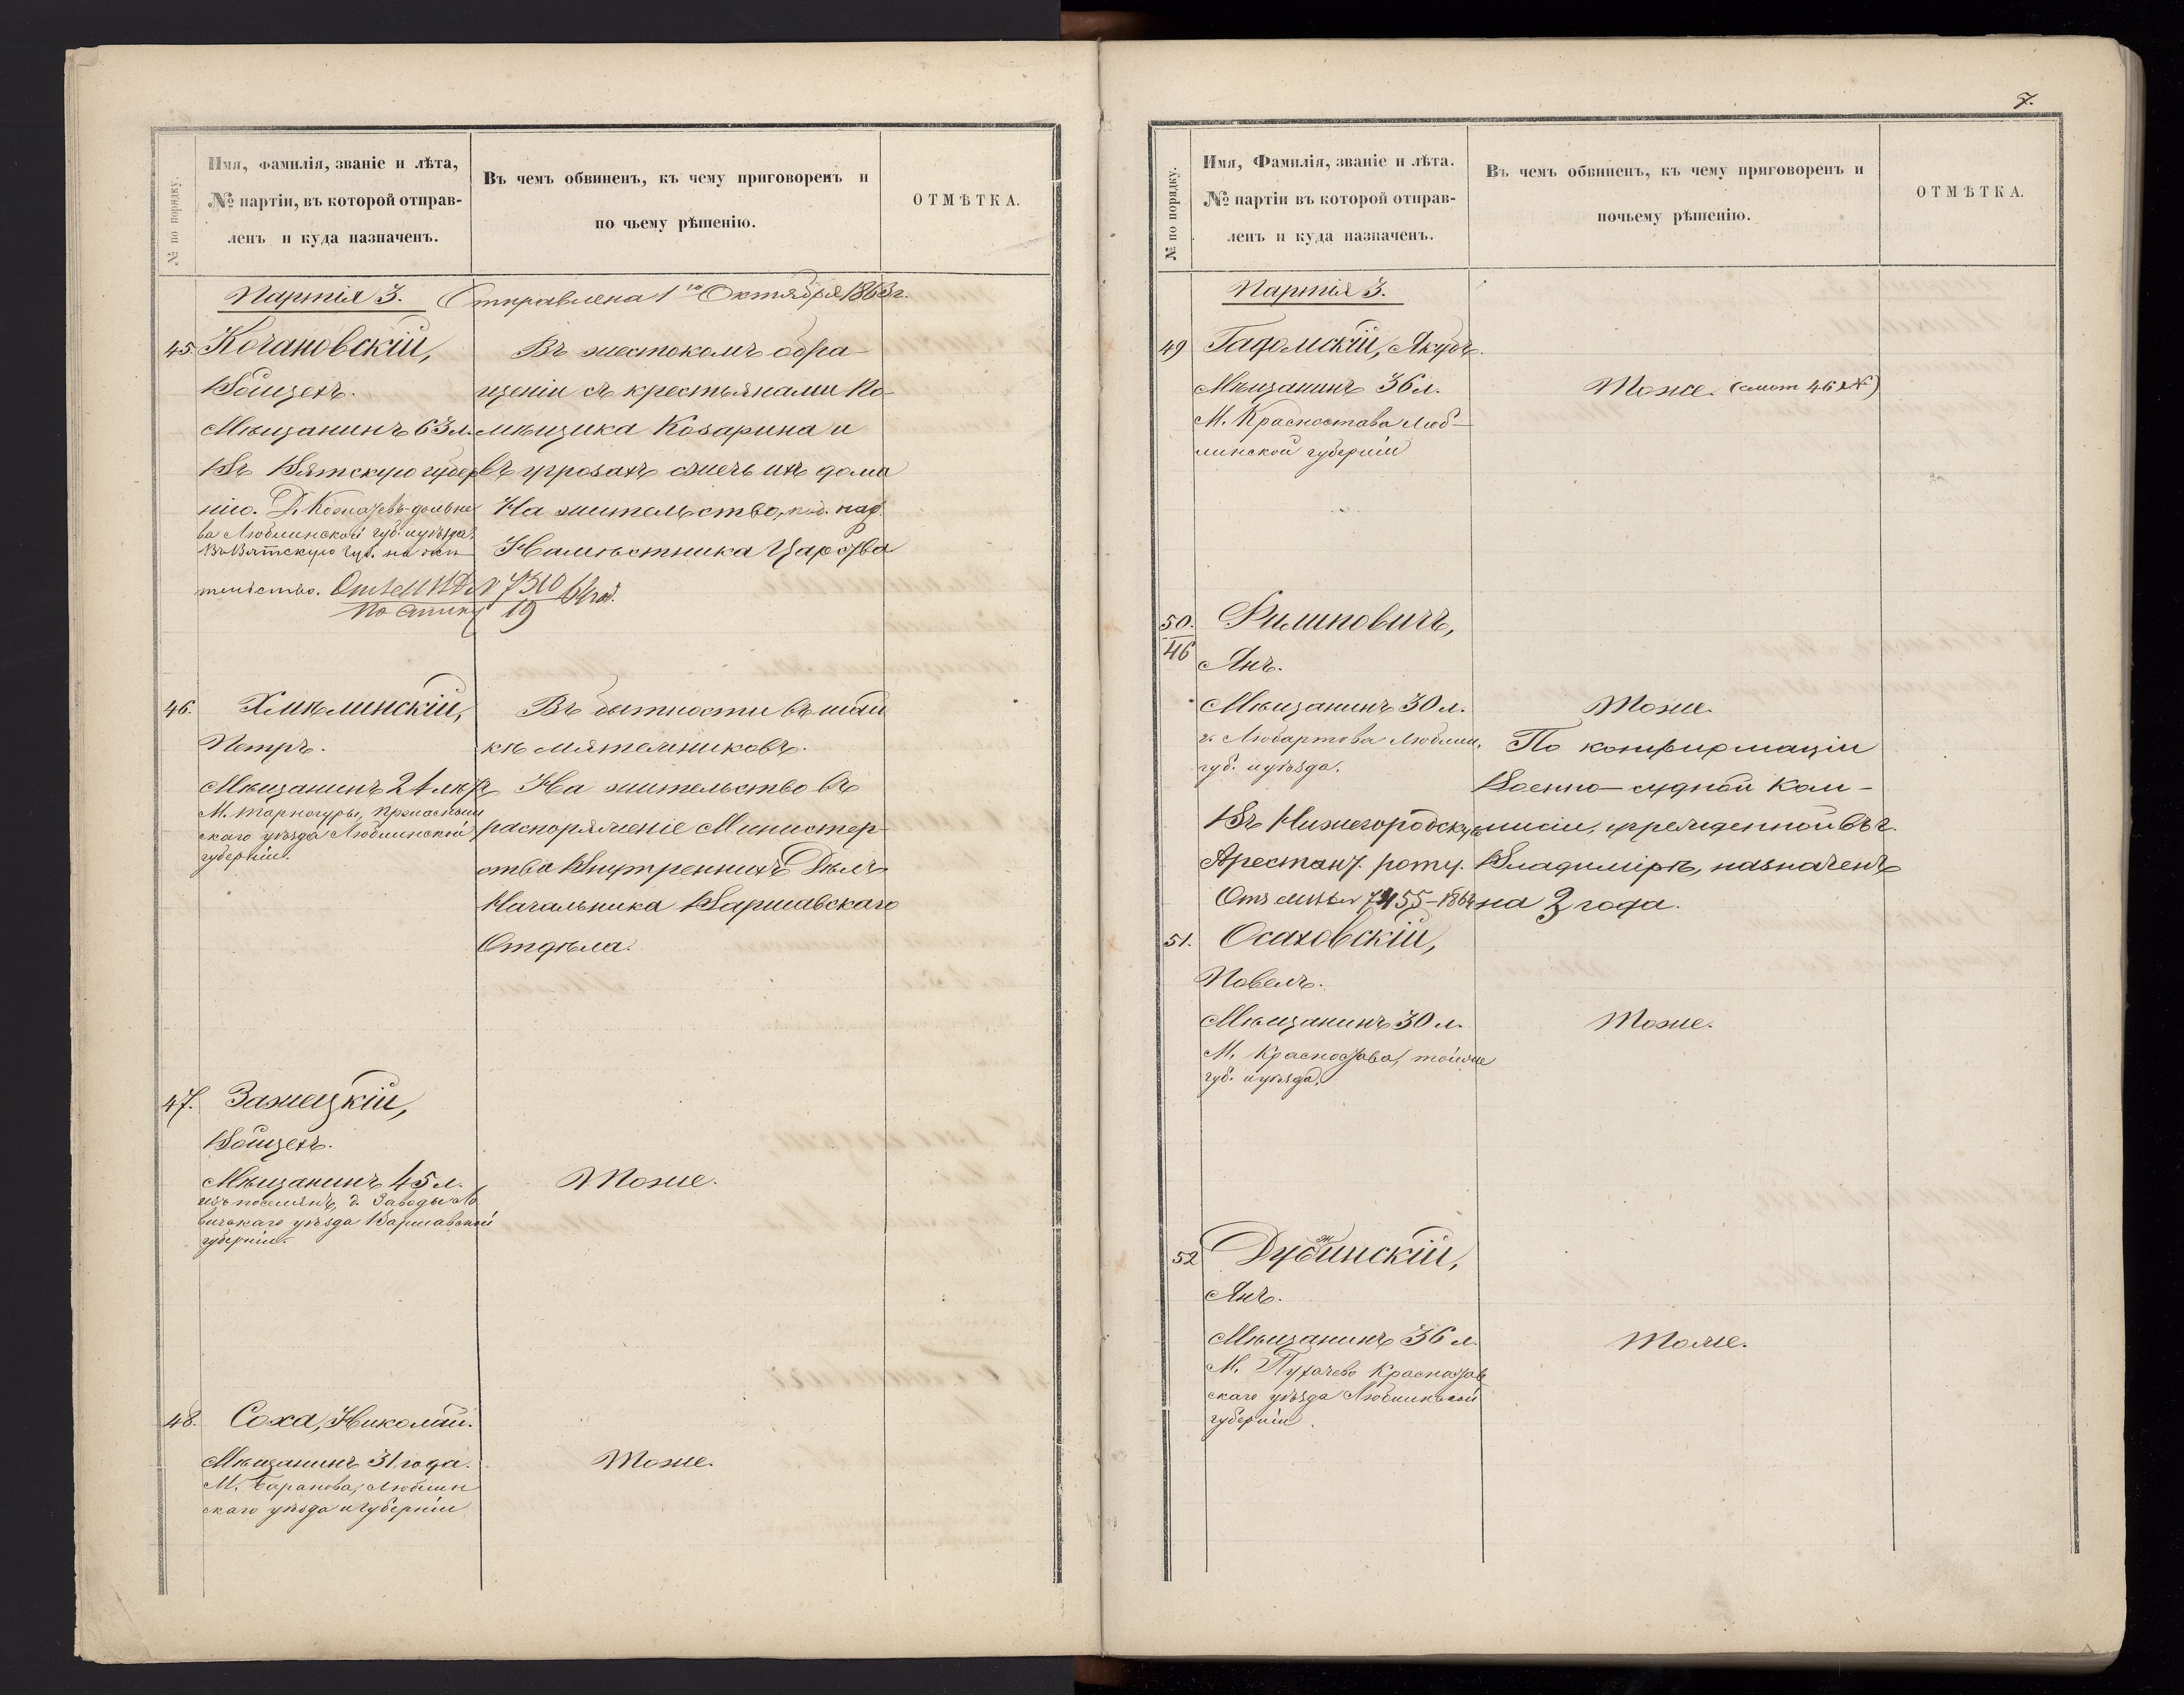 № по порядку.
Имя, фамилія, званіе и лѣта,
№ партіи, въ которой отправ-
ленъ и куда назначенъ.
Въ чемъ обвиненъ, къ чему приговоренъ и
по чьему рѣшенію.
ОТМѢТКА.
Партія 3. Отправлена 1го Октября 1863 г.
45. Кочановскій,
Войцехъ.
Мѣщанинъ 63 л.
Въ Вятскую губер-
нію.
ва Люблинской губ. и уѣзда.
Въ Вятскую губ. на жи-
тельство. № 7310
19
Въ жестокомъ обра-
щеніи съ крестьянами По-
мѣщика Козарина и
въ угрозахъ сжечь ихъ дома
На жительство, под. над.
Намѣстника Царства
46. Хмѣлинскій,
Петръ.
Мѣщанинъ 21 лѣтъ
М. Тарногуры, Красностав
скаго уѣзда Люблинской
губерніи.
Въ бытности въ шай
кѣ мятежниковъ.
На жительство въ
распоряженіе Министер-
ства Внутреннихъ Дѣлъ
Начальника Варшавскаго
Отдѣла.
47. Зажецкій,
Войцехъ.
Мѣщанинъ 45 л.
изъ поселянъ, д. Заводы Ло
вичскаго уѣзда Варшавской
губерніи.
Тоже.
48. Соха, Николай.
Мѣщанинъ 31 года.
М. Баранова, Люблин
скаго уѣзда и губерніи
Тоже.
7.
№ по порядку.
Имя, Фамилія, званіе и лѣта.
№ партіи въ которой отправ-
ленъ и куда назначенъ.
Въ чемъ обвиненъ, къ чему приговоренъ и
почьему рѣшенію.
ОТМѢТКА.
Партія 3.
49 Гадомскій, Якубъ.
Мѣщанинъ 36 л.
М. Красностава Люб-
линской губерніи
Тоже. (смот 46 №)
50.
46
Филиповичъ,
Янъ.
Мѣщанинъ 30 л.
г. Любартова Люблин.
губ. и уѣзда.
Въ Нижегородскую
Арестант. роту.
7455-1864
Тоже.
По конфирмаціи
Военно-судной Ком-
мисіи, учрежденной въ г.
Владимірѣ, назначенъ
на 2 года.
51. Осаховскій,
Павелъ.
Мѣщанинъ 30 л.
М. Красностава, тойже
губ. и уѣзда.
Тоже.
52 Дубинскій,
Янъ.
Мѣщанинъ 36 л.
М. Пухачево Красностав
скаго уѣзда Люблинской
губерніи.
Тоже.